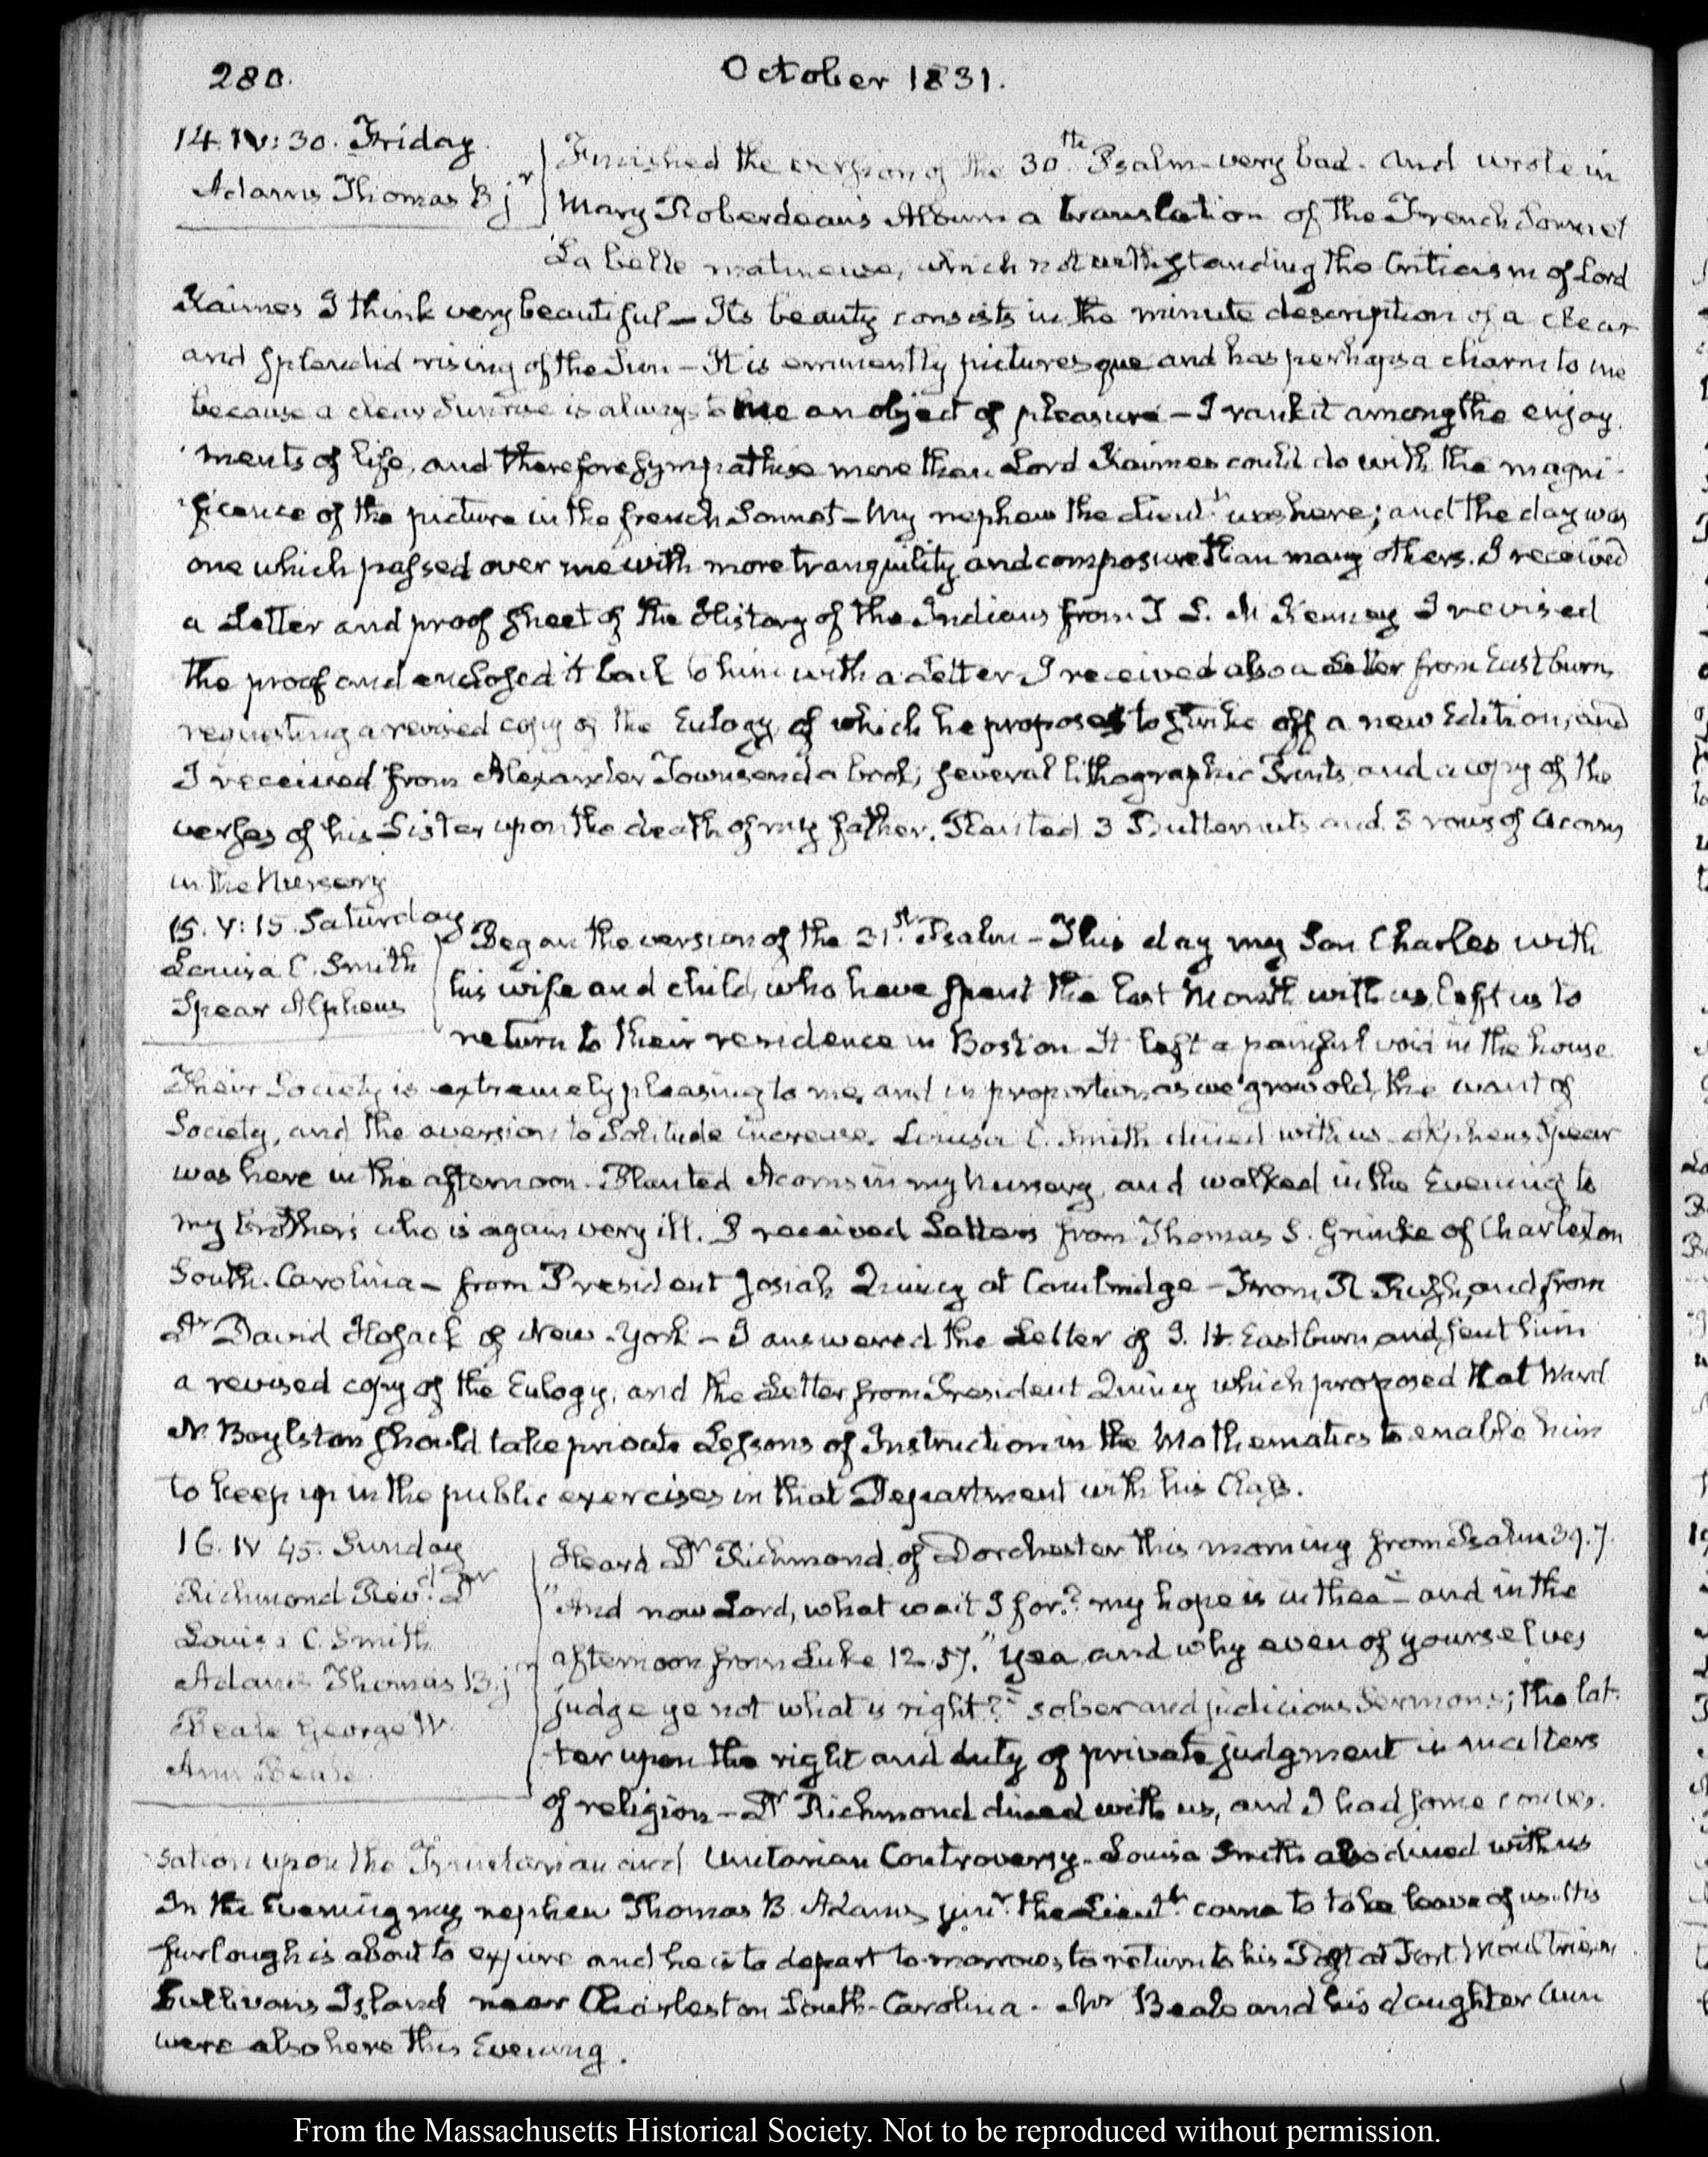 280.
October 1831.
14. IV: 30. Friday.
Adams Thomas B jr
Finished the version of the 30th Psalm very bad. and wrote in
Mary Roberdeau's Album a translation of the French Sonnet
La belle matineuse, which notwithstanding the Criticism of Lord
Kaimes I think very beautiful — Its beauty consists in the minute description of a clear
and splendid rising of the Sun — It is eminently picturesque and has perhaps a charm to me
because a clear Sunrise is always to me an object of pleasure — I rank it among the enjoy
ments of life, and therefore sympathise more than Lord Kaimes could do with the magni-
ficence of the picture in the french Sonnet — My nephew the Lieutt was here; and the day was
one which passed over me with more tranquility and composure than many others. I received
a Letter and proof sheet of the History of the Indians from T L. McKenney I revised
the proof and enclosed it back to him with a Letter. I received also a Letter from Eastburn,
requesting a revised copy of the Eulogy, of which he proposes to strike off a new Edition, and
I received from Alexander Townsend a book, several lithographic Prints, and a copy of the
verses of his Sister upon the death of my father. Planted 3 Butternuts and 3 rows of acorns
in the Nursery
15. V: 15. Saturday
Louisa C. Smith
Spear Alpheus
Began the version of the 31st Psalm — This day my Son Charles with
his wife and child, who have spent the last Month with us, left us to
return to their residence in Boston It left a painful void in the house
Their Society is extremely pleasing to me, and in proportion as we grow old, the want of
Society, and the aversion to Solitude increase. Louisa C. Smith dined with us. Alpheus Spear
was here in the afternoon. Planted Acorns in my Nursery, and walked in the Evening to
my brother's who is again very ill. I received Letters from Thomas S. Grimke of Charleston
South-Carolina — from President Josiah Quincy at Cambridge — From R Rush, and from
Dr David Hosack of New-York — I answered the Letter of J. H. Eastburn and sent him
a revised copy of the Eulogy, and the Letter from President Quincy which proposed that Ward
N. Boylston should take private Lessons of Instruction in the Mathematics to enable him
to keep up in the public exercises in that Department with his Class.
16. IV 45. Sunday
Richmond Revd Dr
Louisa C. Smith
Adams Thomas B. jr
Beale George W.
Ann Beale
Heard Dr Richmond of Dorchester this morning from Psalm 39. 7.
"And now Lord, what wait I for? my hope is in thee" — and in the
afternoon from Luke 12. 57. "Yea, and why even of yourselves
judge ye not what is right?" sober and judicious Sermons; the lat-
ter upon the right and duty of private judgment in matters
of religion — Dr Richmond dined with us, and I had some conver-
sation upon the Trinitarian and Unitarian Controversy. Louisa Smith also dined with us
In the Evening my nephew Thomas B. Adams junr. the Lieutt. came to take leave of us. His
furlough is about to expire and he is to depart to-morrow, to return to his Post at Fort Moultrie, on
Sullivans Island near Charleston South-Carolina. Mr Beale and his daughter Ann
were also here this Evening.
From the Massachusetts Historical Society. Not to be reproduced without permission.